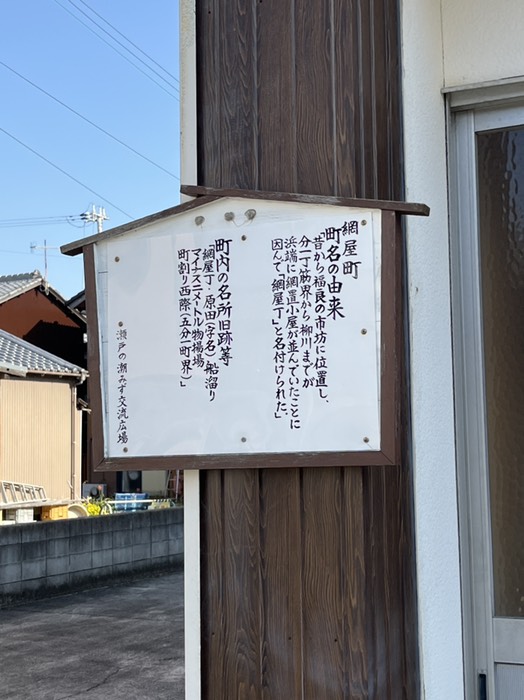 網屋町
町名の由来
「昔から福良の市坊に位置し、
分一丁筋界から柳川までが
浜端に網置小屋が並んでいたことに
因んで、網屋丁」と名付けられた。」
町内の名所旧跡等
「網屋丁・原田(字名)船溜り
マイナス三メートル物揚場
町割り西際(五分一町界)」
瀬戸の潮みず交流広場